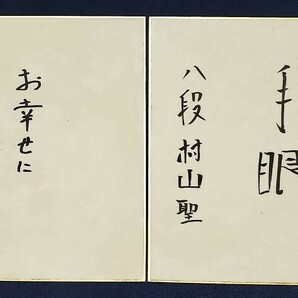 手眼
八段 村山聖
お幸せに